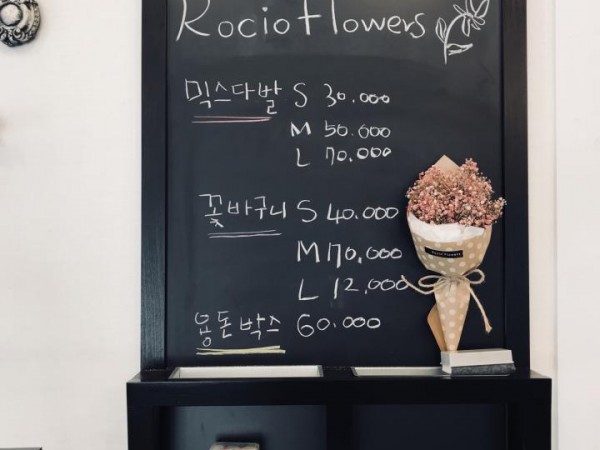 Rocio flowers
믹스다발 S 30.000
M 50.000
L 70.000
꽃바구니 S 40.000
M 70.000
L 12,000
용돈박스 60.000